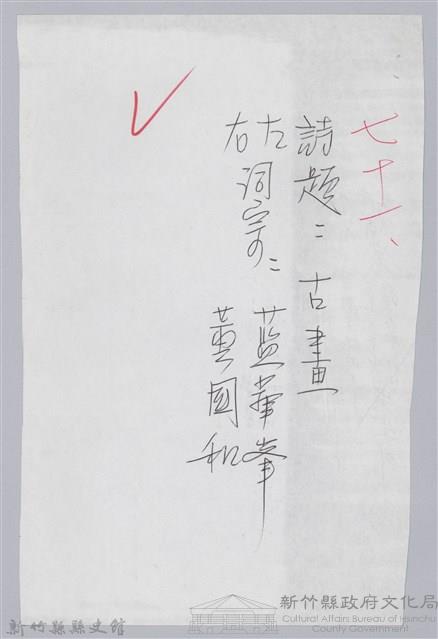 七十一、
詩題：古畫
左詞宗：藍華峯
右　　　黃國和
新竹縣縣史館
新竹縣政府文化局
Cultural Affairs Bureau of Hsinchu
County Government